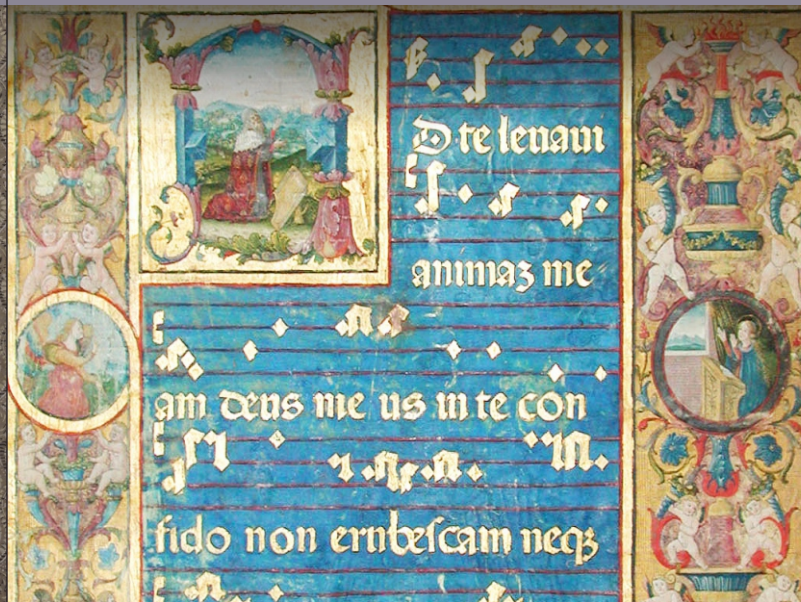 AD te leuaui
animaz me
am deus me us in te con
fido non erubescam neqz